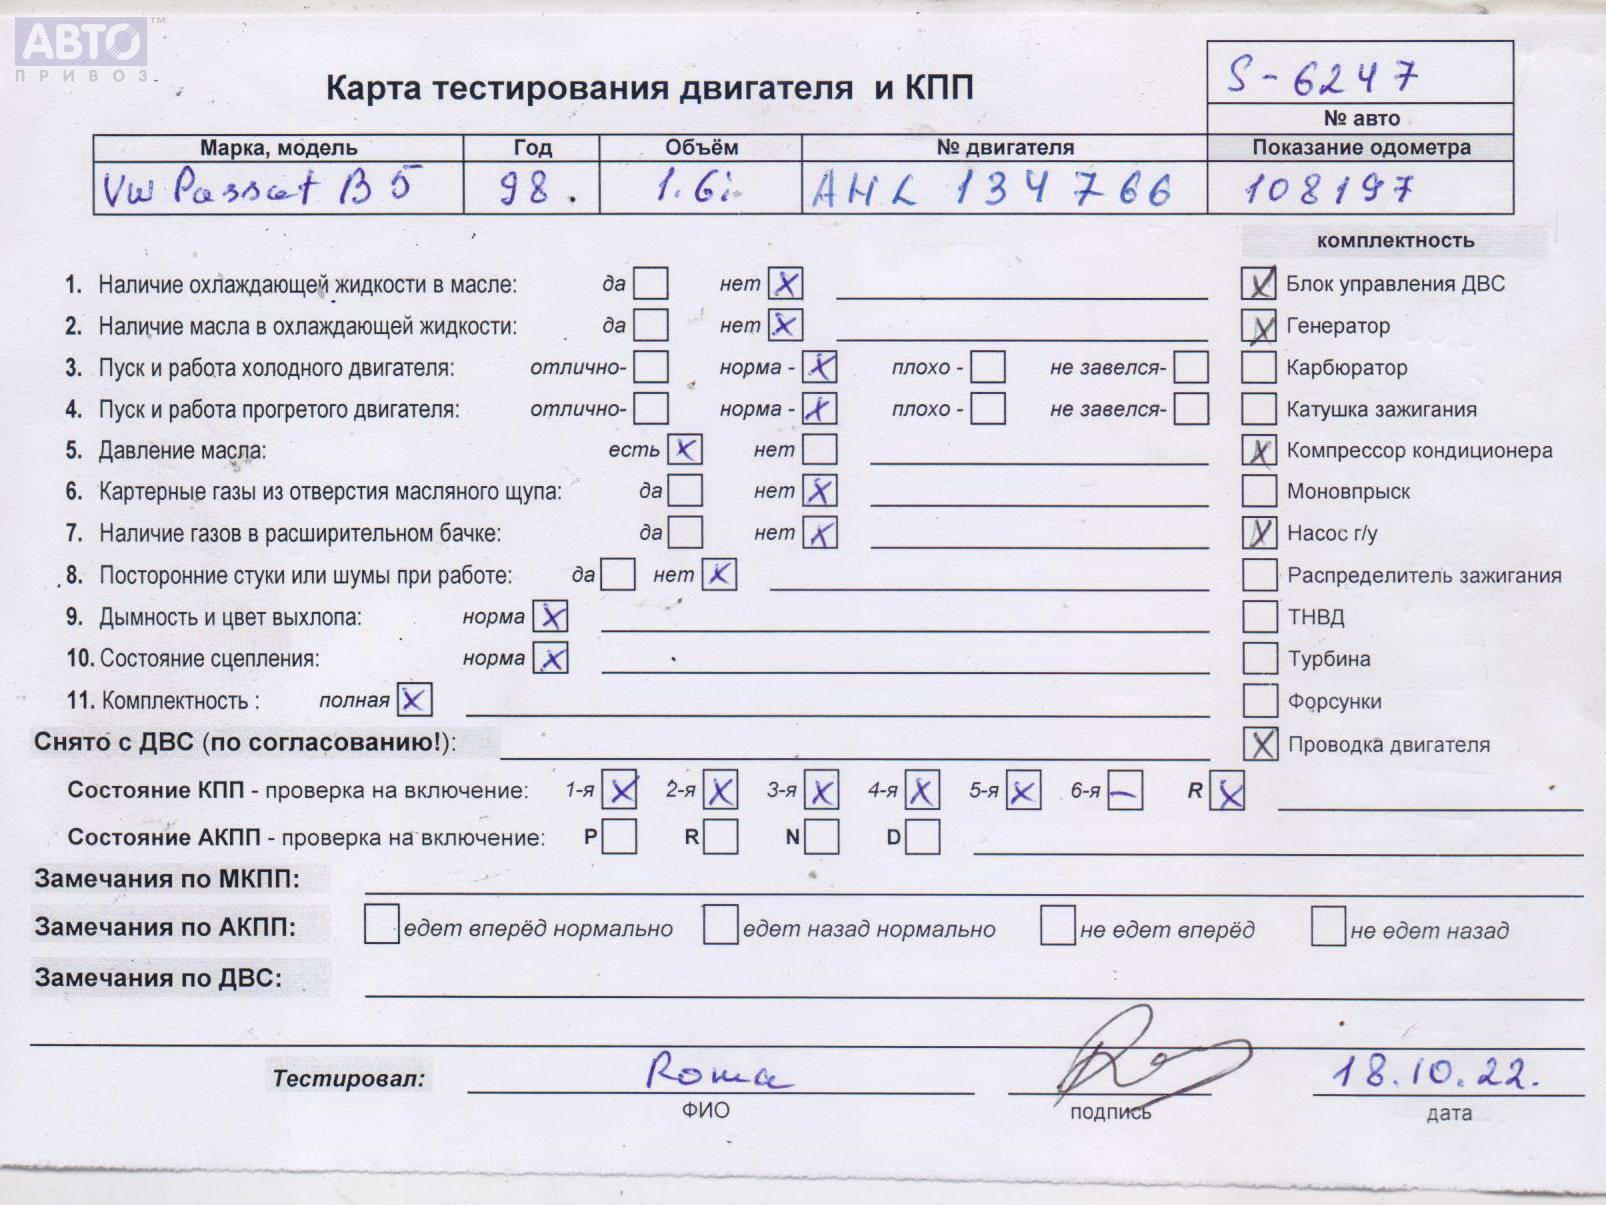 АВТО™
ПРИВОЗ
Карта тестирования двигателя и КПП
S-6247
№ авто
Марка, модель Год Объём № двигателя Показание одометра
VW Passat B5 98. 1.6i AHL 134766 108197
комплектность
1. Наличие охлаждающей жидкости в масле: да нет X Блок управления ДВС X
2. Наличие масла в охлаждающей жидкости: да нет X Генератор X
3. Пуск и работа холодного двигателя: отлично- норма - X плохо - не завелся- Карбюратор
4. Пуск и работа прогретого двигателя: отлично- норма - X плохо - не завелся- Катушка зажигания
5. Давление масла: есть X нет X Компрессор кондиционера
6. Картерные газы из отверстия масляного щупа: да нет X Моновпрыск
7. Наличие газов в расширительном бачке: да нет X X Насос г/у
8. Посторонние стуки или шумы при работе: да нет X Распределитель зажигания
9. Дымность и цвет выхлопа: норма X ТНВД
10. Состояние сцепления: норма X Турбина
11. Комплектность : полная X Форсунки
Снято с ДВС (по согласованию!): X Проводка двигателя
Состояние КПП - проверка на включение: 1-я X 2-я X 3-я X 4-я X 5-я X 6-я – R X
Состояние АКПП - проверка на включение: P R N D
Замечания по МКПП:
Замечания по АКПП: едет вперёд нормально едет назад нормально не едет вперёд не едет назад
Замечания по ДВС:
Тестировал: Roma 18.10.22.
ФИО подпись дата